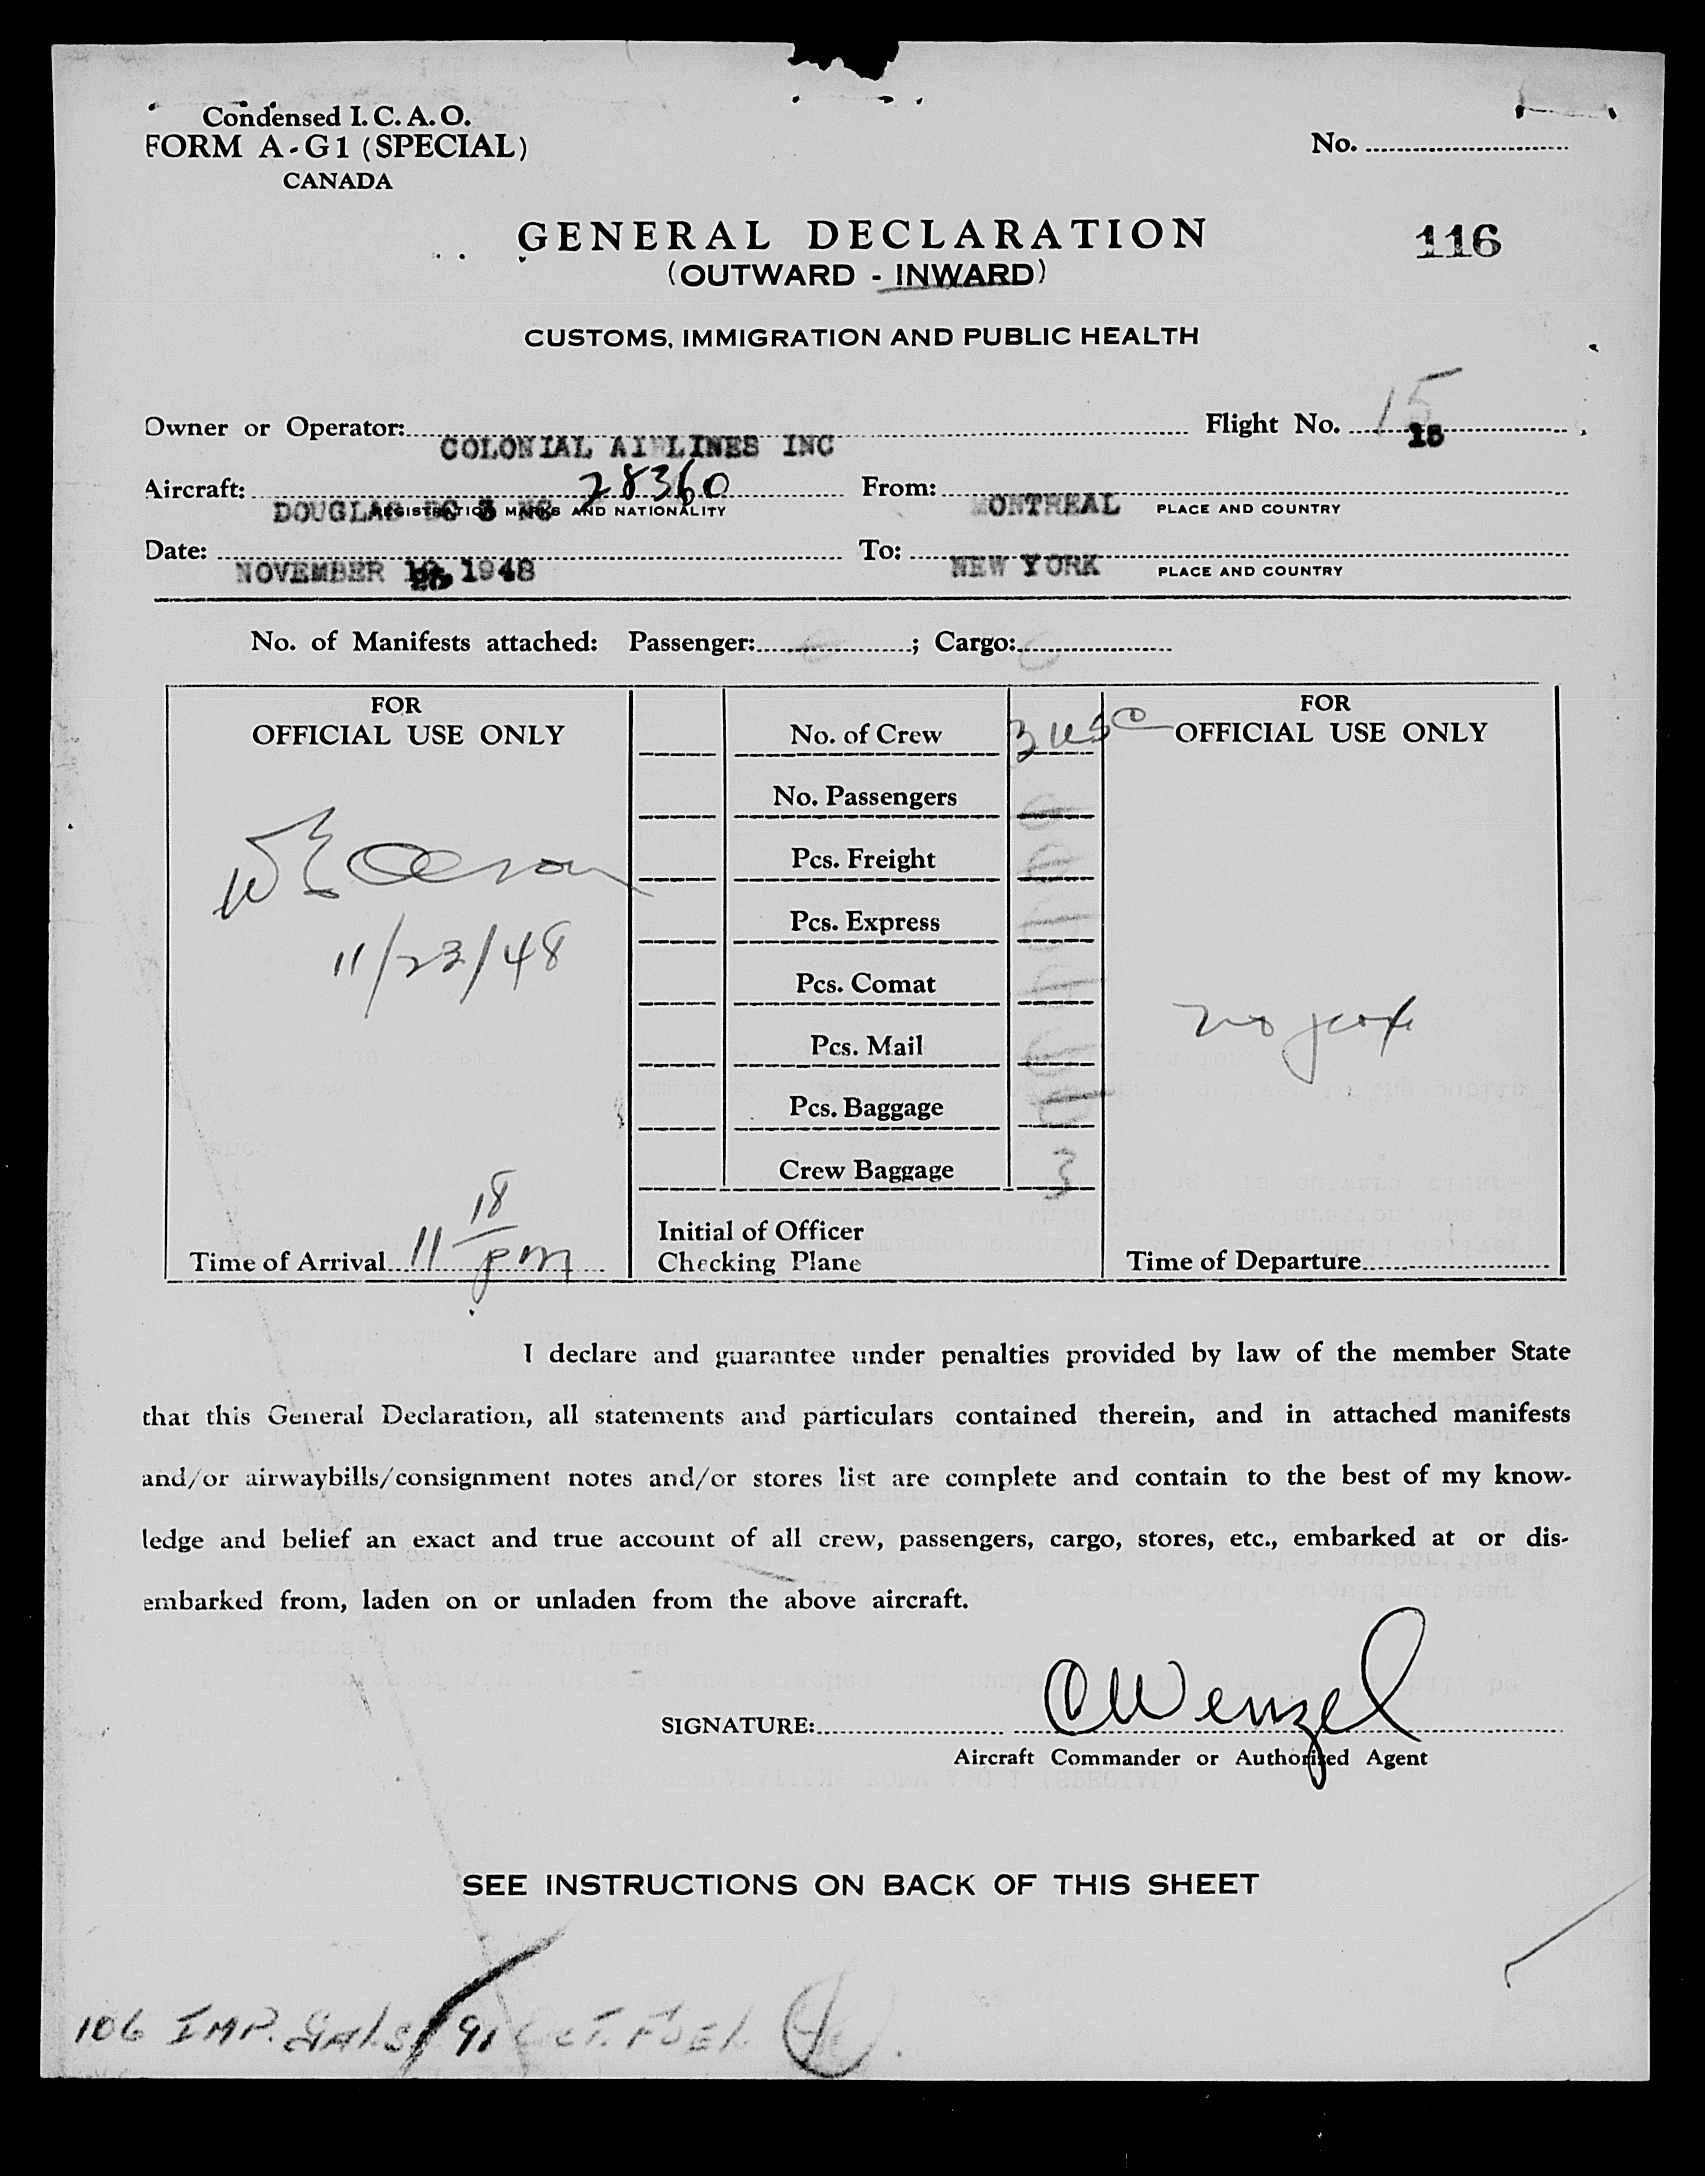 Condensed I. C. A. O.
FORM A-G1 (SPECIAL)
CANADA
No.
GENERAL DECLARATION
116
(OUTWARD - INWARD)
CUSTOMS, IMMIGRATION AND PUBLIC HEALTH
Owner or Operator: COLONIAL AIRLINES INC Flight No. 15
Aircraft: DOUGLAS DC 3 NC 28360 From: MONTREAL
REGISTRATION MARKS AND NATIONALITY PLACE AND COUNTRY
Date: NOVEMBER 1948 To: NEW YORK
PLACE AND COUNTRY
No. of Manifests attached: Passenger: ; Cargo:
FOR
OFFICIAL USE ONLY
11/23/48
Time of Arrival 11 18 pm
No. of Crew 3 USC
No. Passengers
Pcs. Freight
Pcs. Express
Pcs. Comat
Pcs. Mail
Pcs. Baggage
Crew Baggage 3
Initial of Officer
Checking Plane
FOR
OFFICIAL USE ONLY
no
Time of Departure
I declare and guarantee under penalties provided by law of the member State
that this General Declaration, all statements and particulars contained therein, and in attached manifests
and/or airwaybills/consignment notes and/or stores list are complete and contain to the best of my know-
ledge and belief an exact and true account of all crew, passengers, cargo, stores, etc., embarked at or dis-
embarked from, laden on or unladen from the above aircraft.
SIGNATURE: CWenzel
Aircraft Commander or Authorized Agent
SEE INSTRUCTIONS ON BACK OF THIS SHEET
106 IMP. GALS 91 OCT. FUEL